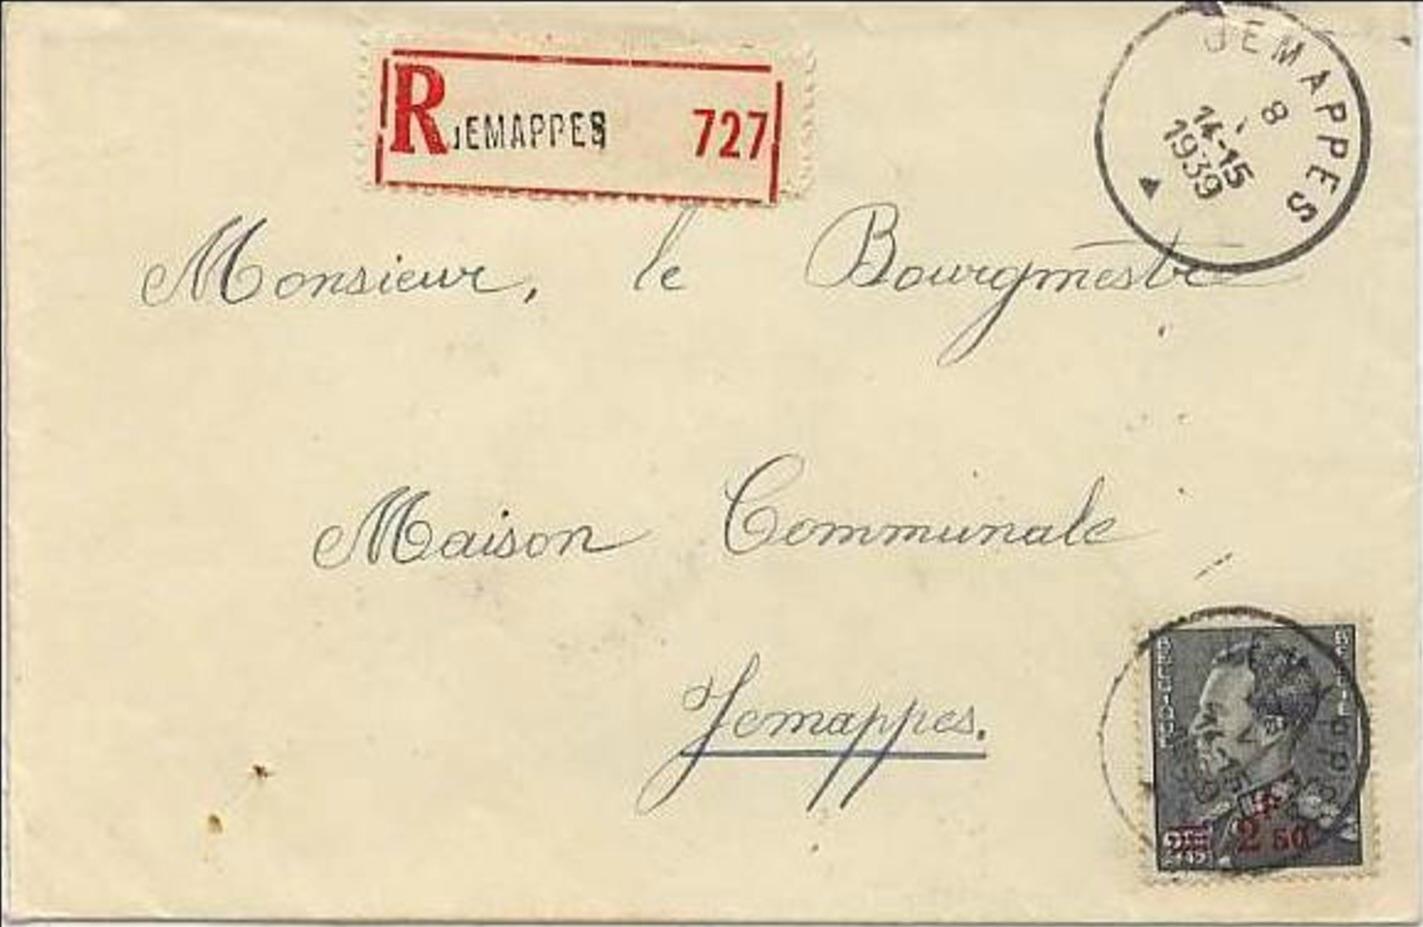 R JEMAPPES 727
JEMAPPES
8
14-15
1939
Monsieur, le Bourgmestre
Maison Communale
Jemappes.
BELGIQUE
BELGIE
2 50